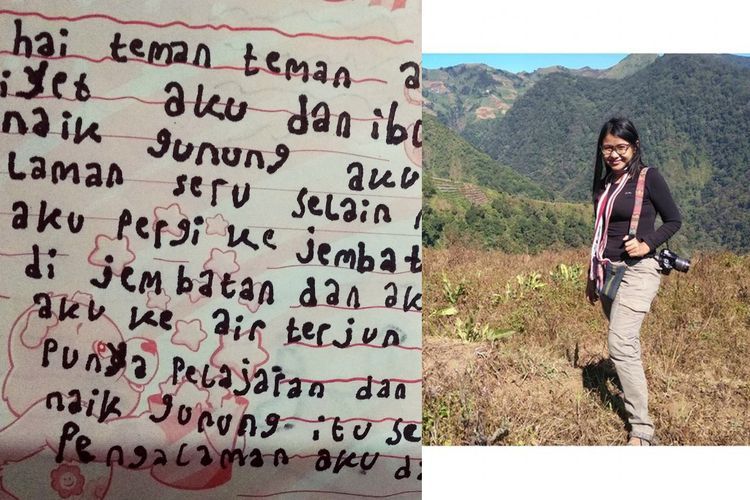 hai teman teman a
iyet aku dan ibu
naik gunung aku
Laman seru selain
aku pergi ke jembat
di jembatan dan ak
aku ke air terjun
punya pelajaran dan
naik gunung itu se
Pengalaman aku da